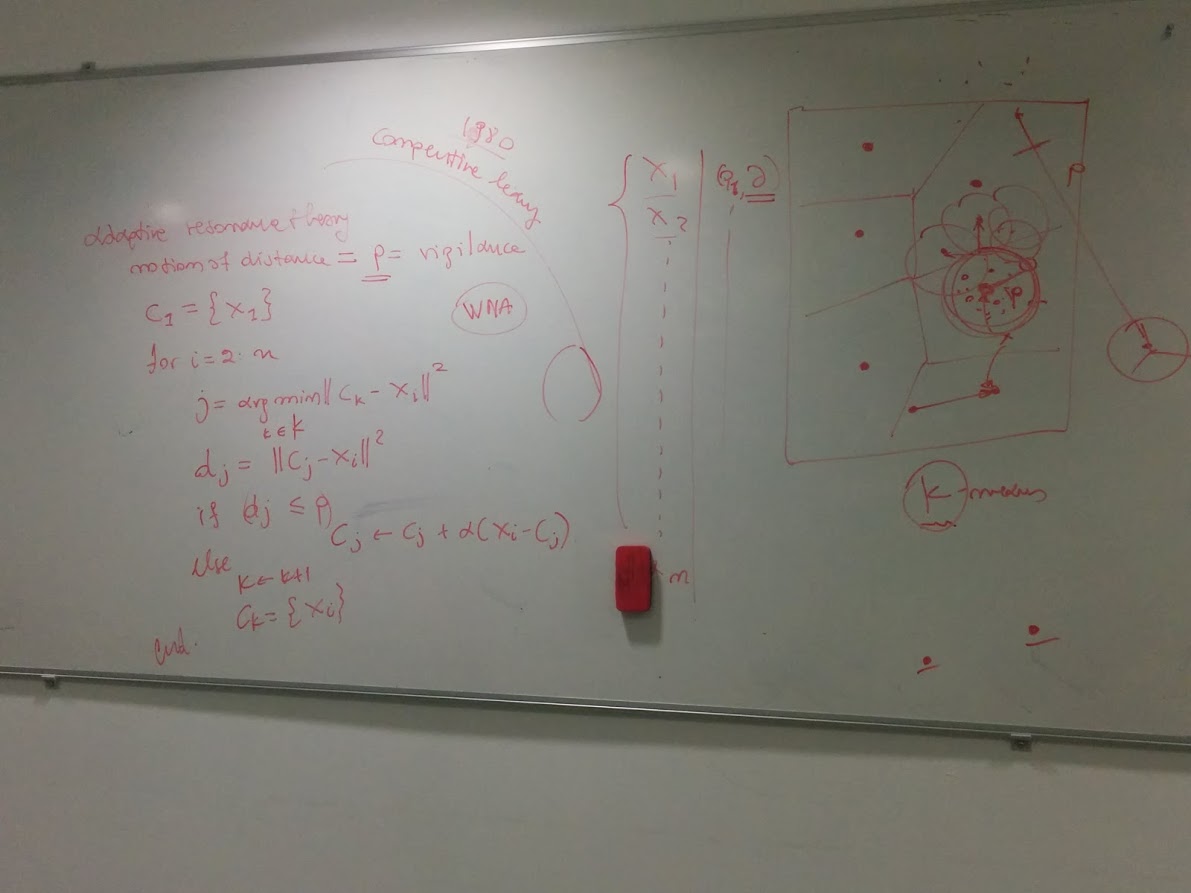 1980
Competitive learng
adaptive resonance theory
notion of distance = ρ = vigilance
C1 = {x1}
WNA
for i = 2: n
j = arg min || Ck - xi ||²
k ∈ K
dj = || Cj - xi ||²
if dj ≤ ρ
Cj ← Cj + α(xi - Cj)
else
k ← k+1
Ck = {xi}
end.
x1
x2
n
ρ
ρ
K-means